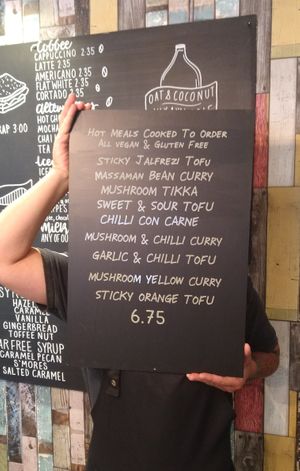 Coffee
CAPPUCCINO 2.35
LATTE 2.35
AMERICANO 2.35
FLAT WHITE 2.35
CORTADO 2.35
OAT & COCONUT
WRAP 3.00
HOT MEALS COOKED TO ORDER
ALL VEGAN & GLUTEN FREE
STICKY JALFREZI TOFU
MASSAMAN BEAN CURRY
MUSHROOM TIKKA
SWEET & SOUR TOFU
CHILLI CON CARNE
MUSHROOM & CHILLI CURRY
GARLIC & CHILLI TOFU
MUSHROOM YELLOW CURRY
STICKY ORANGE TOFU
6.75
ANY OF OU
HAZEL
CARAMEL
VANILLA
GINGERBREAD
TOFFEE NUT
AR FREE SYRUP
CARAMEL PECAN
S'MORES
SALTED CARAMEL